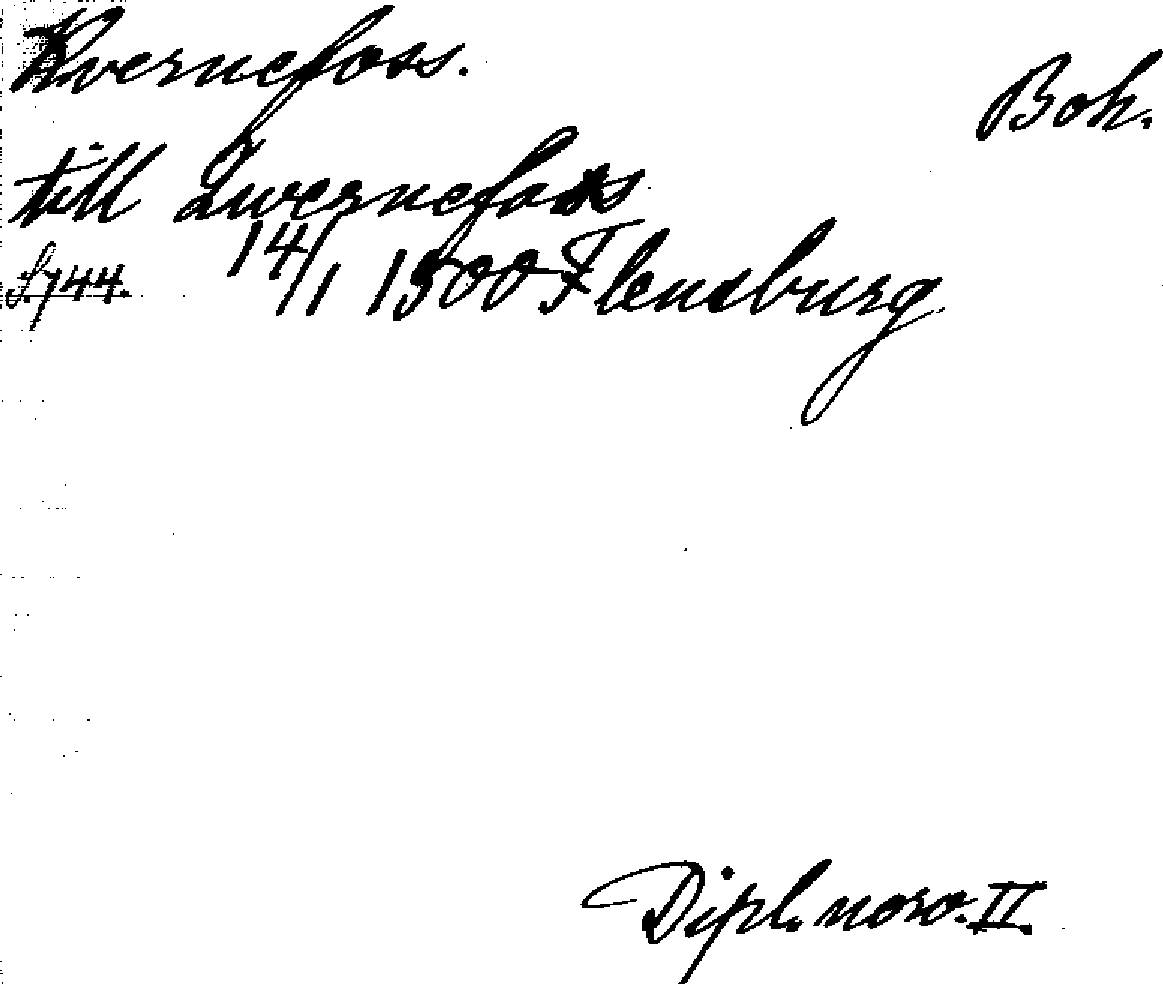 Kvernefoss.
Boh.
till Qwernefoss
S. 744. 14/1 1500 Flensburg
Dipl. norv. II.